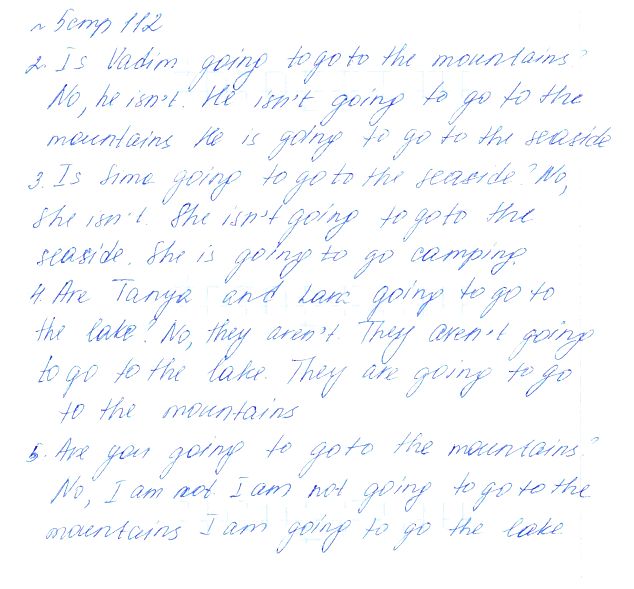 ~ 5 стр 112
2. Is Vadim going to go to the mountains?
No, he isn't. He isn't going to go to the
mountains He is going to go to the seaside
3. Is Sima going to go to the seaside? No,
she isn't. She isn't going to go to the
seaside. She is going to go camping.
4. Are Tanya and Lara going to go to
the lake? No, they aren't. They aren't going
to go to the lake. They are going to go
to the mountains
5. Are you going to go to the mountains?
No, I am not I am not going to go to the
mountains I am going to go the lake